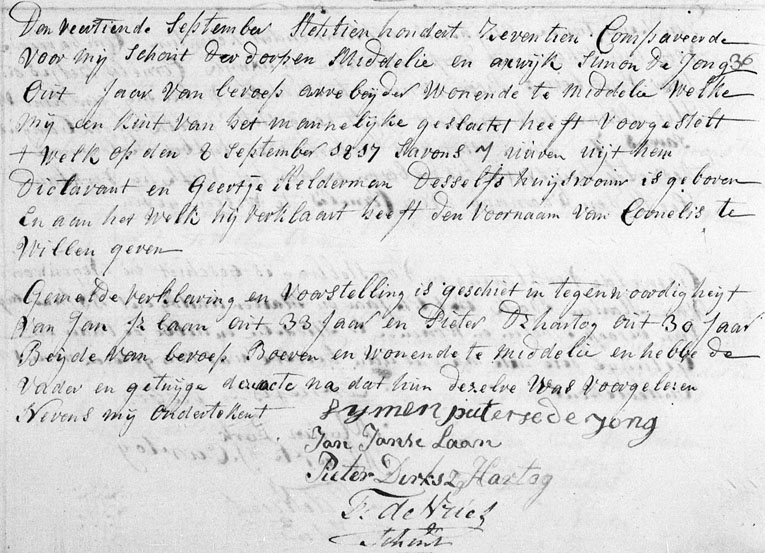 Den veertiende September Achttien hondert Zeventien Compareerde
voor mij Schout der dorpen Middelie en axwijk Simon De Jong 36
Out Jaar Van beroep arrebeyder Wonende te Middelie Welke
mij een kint Van het mannelijke geslacht heeft voorgestelt
+ Welk op den 8 September 1817 Savons 7 uuren uijt hem
Diclarant en Geertje Kelderman Desselfs huijsvrouw is geboren
En aan het Welk hij verklaart heeft den voornaam van Cornelis te
Willen geven
Gemelde verklaring en Voorstelling is geschiet in tegenwoordigheyt
Van Jan Jz laan out 33 Jaar en Pieter Dz hartog out 30 Jaar
Beyde Van beroep Boeren en wonende te Middelie en hebbe de
Vader en getuijge deese acte na dat hun dezelve Was voorgelezen
Nevens mij Ondertekent
Symen pieterse de Jong
Jan Janse Laan
Pieter Dirksz Hartog
de Vries
Schout